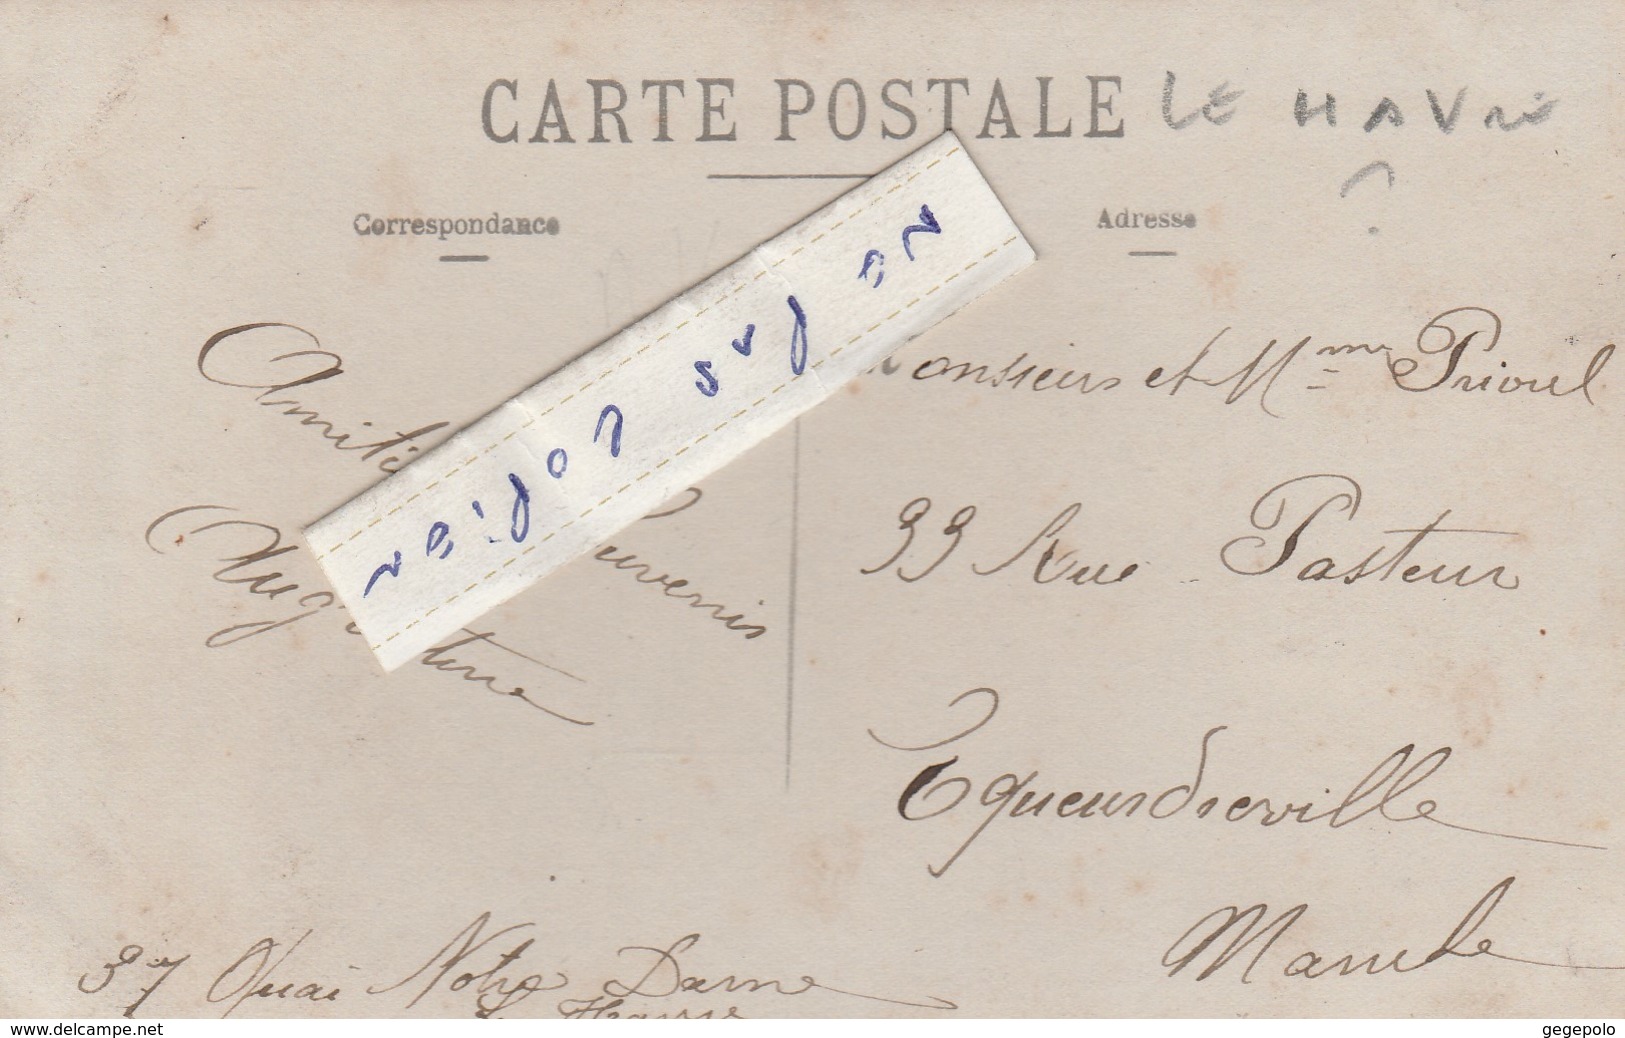 CARTE POSTALE LE HAVRE
?
Correspondance
Adresse
ne pas copier
Amitié Souvenir
Augustine
Monsieur et Mme Prioul
99 Rue Pasteur
Equeurdreville
Manche
37 Quai Notre Dame
Le Havre
www.delcampe.net
gegepolo